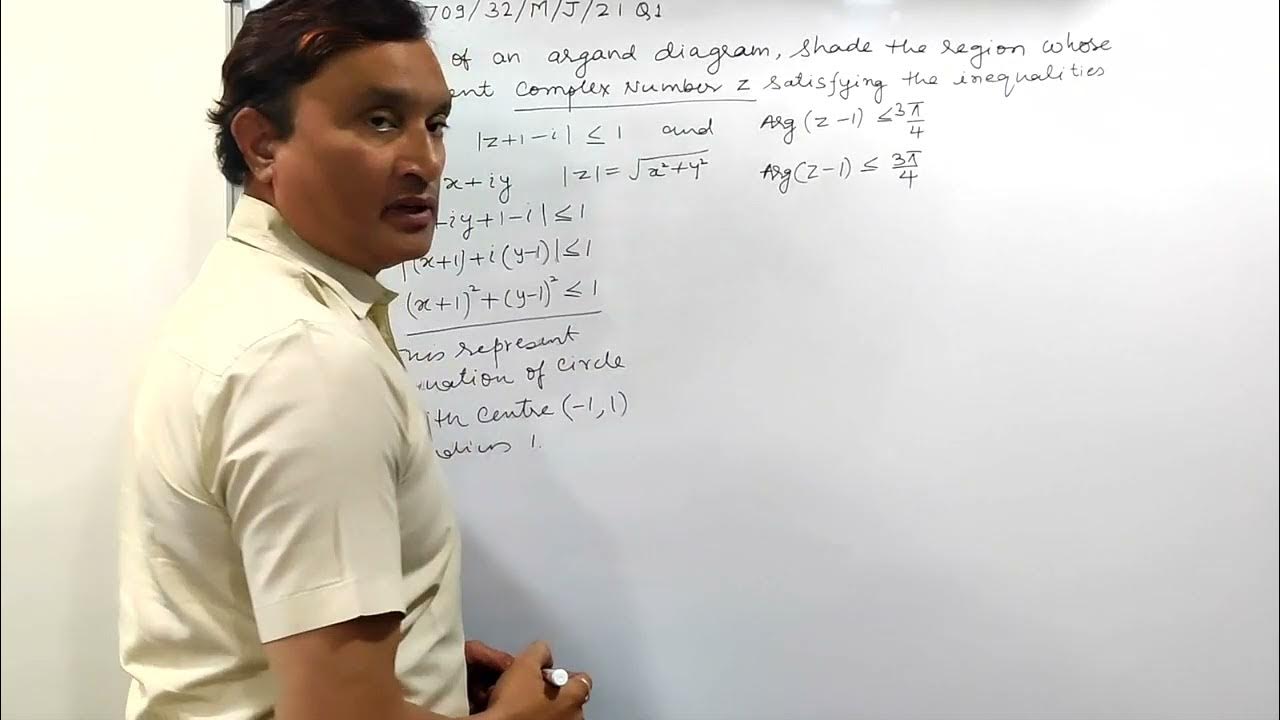 709/32/M/J/21 Q1
of an argand diagram, shade the region whose
ent complex number z satisfying the inequalities
|z+1-i| ≤ 1 and Arg (z-1) ≤ 3π/4
x+iy |z| = √x²+y² Arg(z-1) ≤ 3π/4
iy+1-i| ≤ 1
|(x+1)+i(y-1)| ≤ 1
(x+1)²+(y-1)² ≤ 1
his represent
uation of circle
ith centre (-1,1)
dius 1.